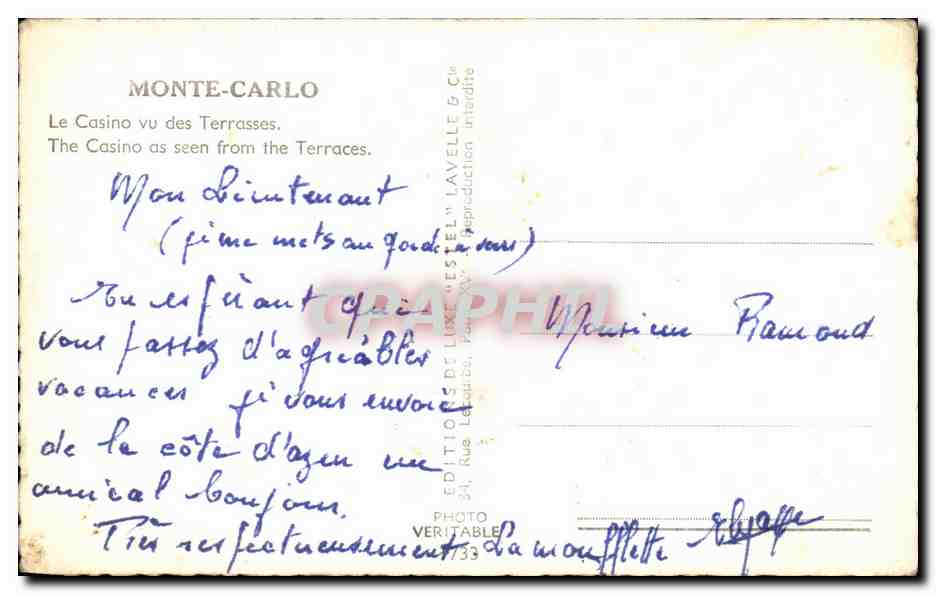 MONTE-CARLO
Le Casino vu des Terrasses.
The Casino as seen from the Terraces.
Mon Lieutenant
(je me mets au garde à vous)
En espérant que
vous passez d'agréables
vacances je vous envoie
de la côte d'azur un
amical bonjour.
Très respectueusement. La moufflette
EDITIONS DE LUXE "ESTEL" LAVELLE & Cie
34, Rue Lecourbe, Paris XVe Reproduction interdite
PHOTO
VERITABLE
Monsieur Ramond
CPAPHIL